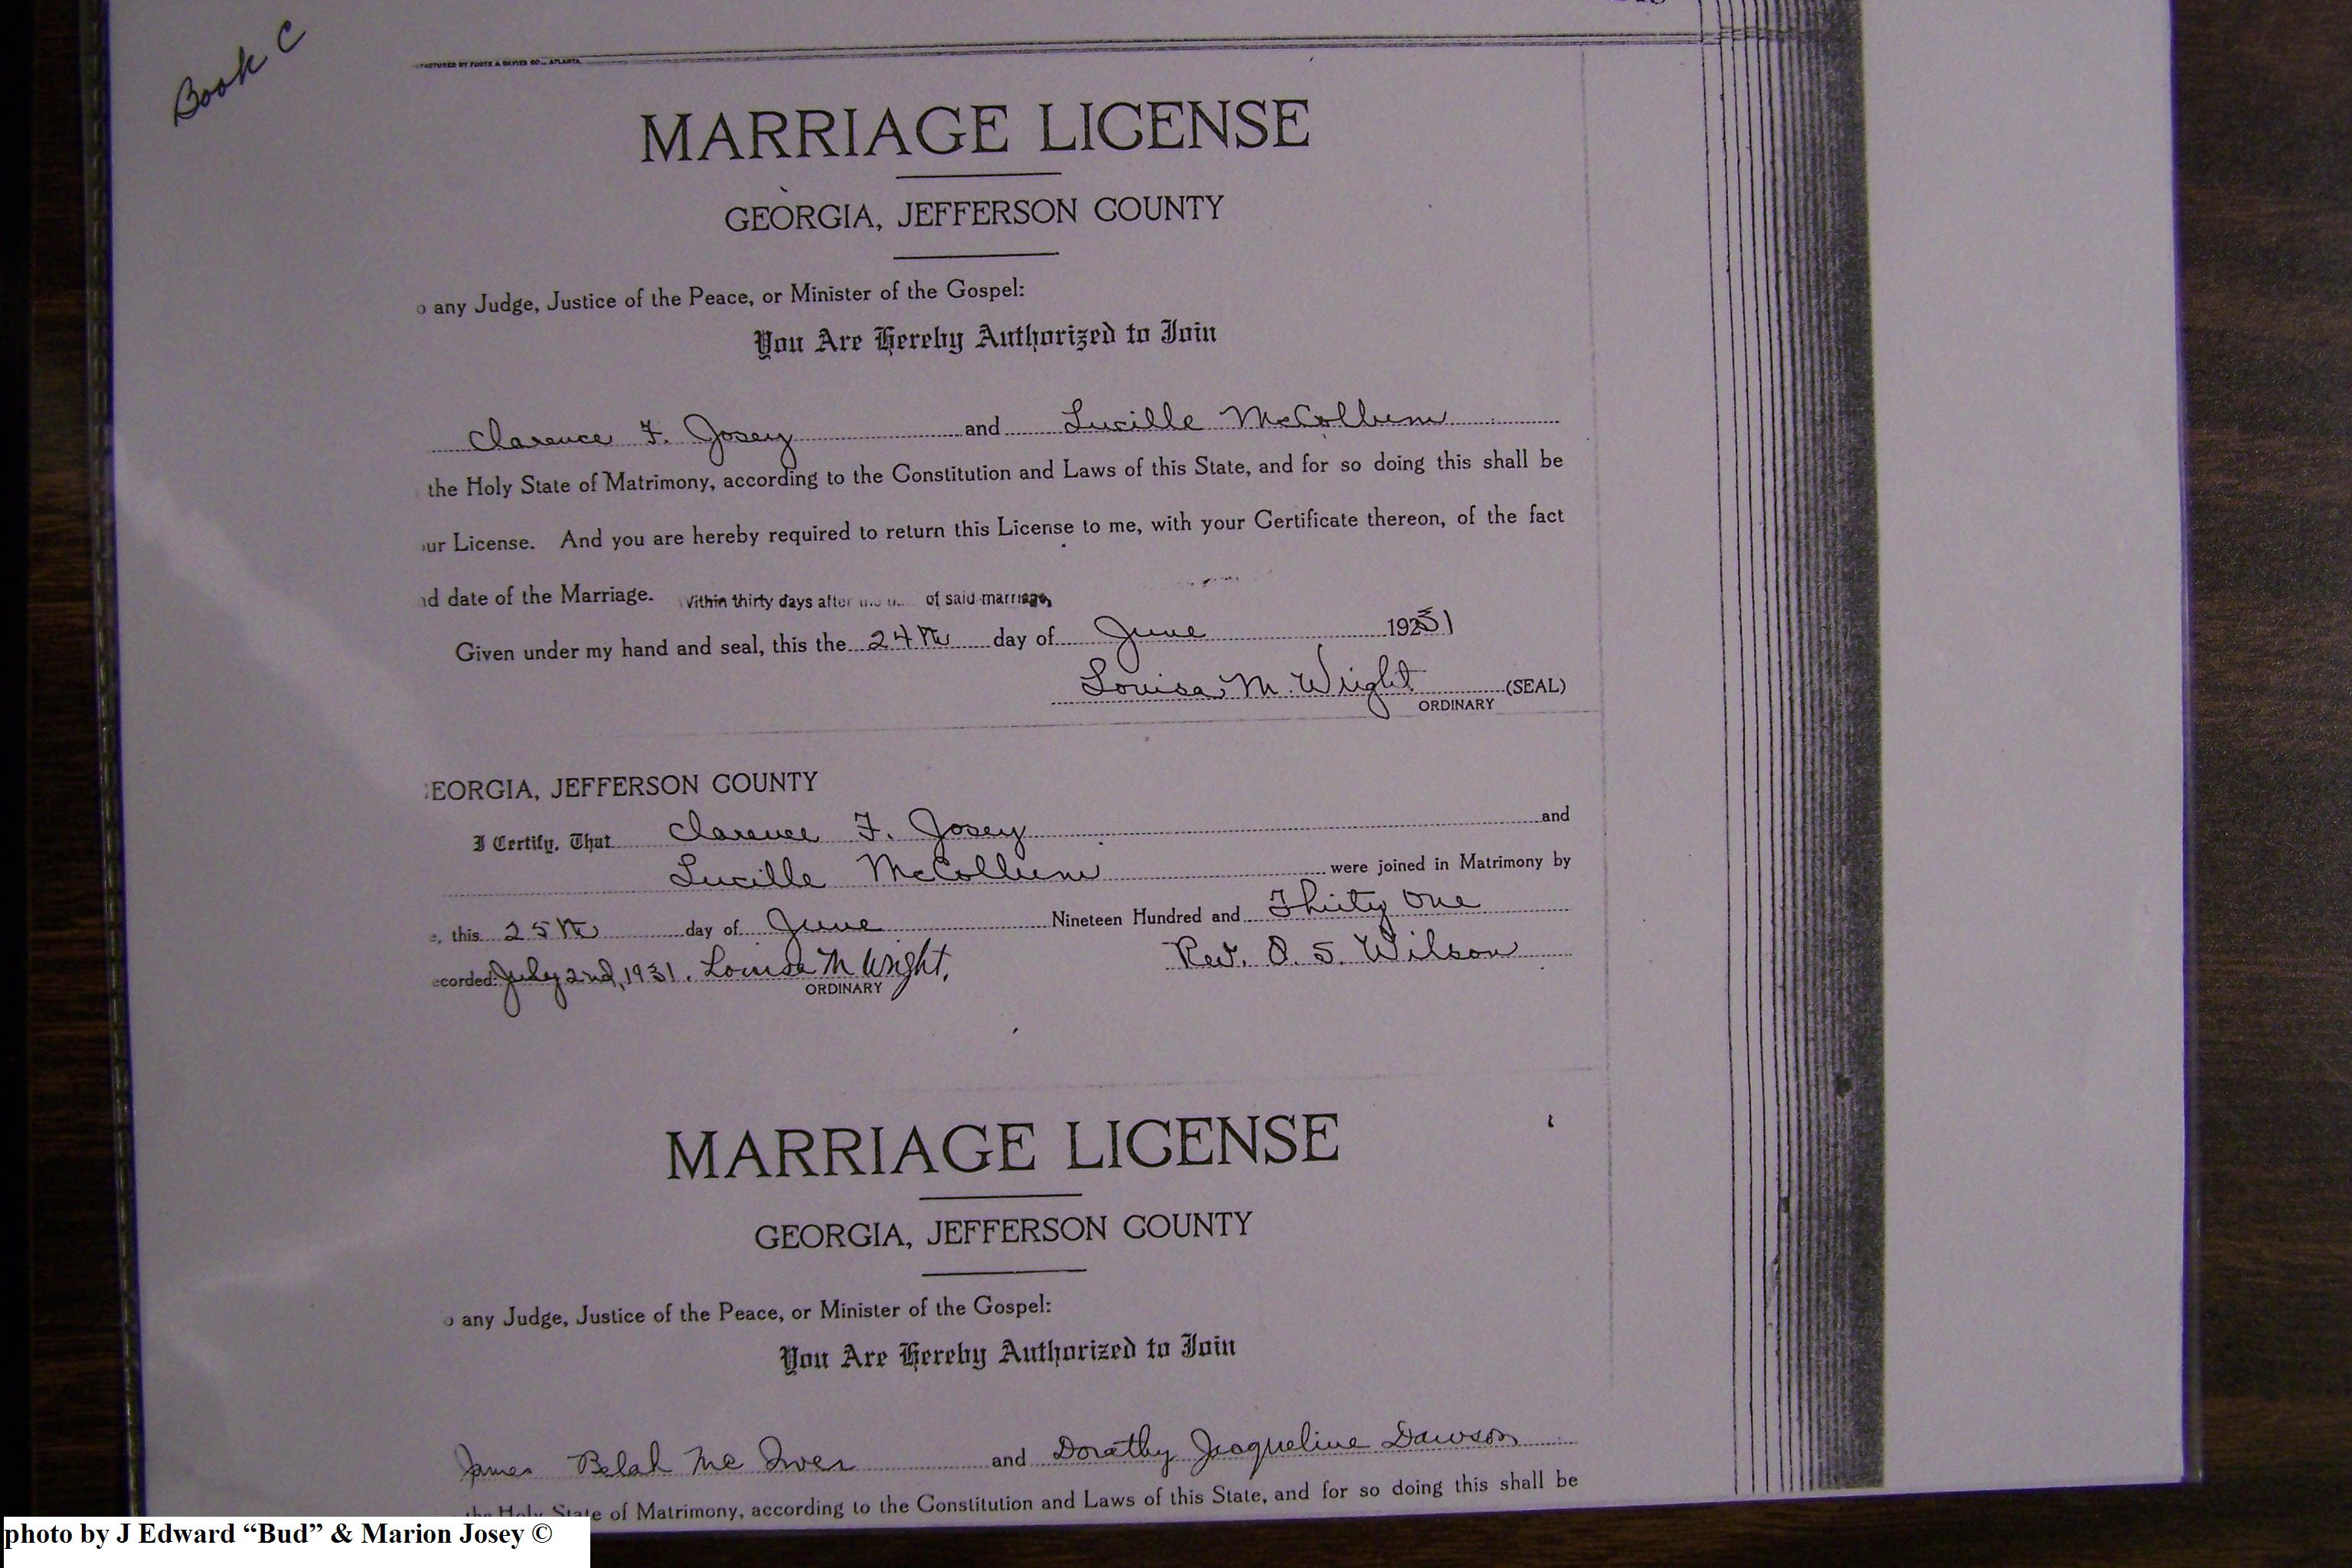 Book C
FACTURED BY FOOTE & DAVIES CO., ATLANTA
MARRIAGE LICENSE
GEORGIA, JEFFERSON COUNTY
o any Judge, Justice of the Peace, or Minister of the Gospel:
You Are Hereby Authorized to Join
Clarence F. Josey and Lucille McCollum
the Holy State of Matrimony, according to the Constitution and Laws of this State, and for so doing this shall be
ur License. And you are hereby required to return this License to me, with your Certificate thereon, of the fact
d date of the Marriage. Within thirty days after of said marriage,
Given under my hand and seal, this the 24th day of June 1931
Louisa M. Wright (SEAL)
ORDINARY
EORGIA, JEFFERSON COUNTY
I Certify, That Clarence F. Josey and
Lucille McCollum were joined in Matrimony by
e, this 25th day of June Nineteen Hundred and Thirty One
ecorded: July 2nd, 1931. Louisa M Wright, Rev. O. S. Wilson
ORDINARY
MARRIAGE LICENSE
GEORGIA, JEFFERSON COUNTY
o any Judge, Justice of the Peace, or Minister of the Gospel:
You Are Hereby Authorized to Join
James Belah McIver and Dorathy Jacqueline Dawson
the Holy State of Matrimony, according to the Constitution and Laws of this State, and for so doing this shall be
photo by J Edward “Bud” & Marion Josey ©